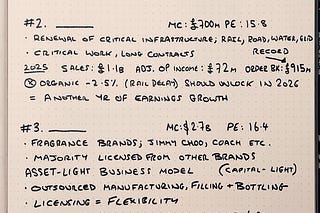 #2. ______ MC: £700M PE: 15.8
· RENEWAL OF CRITICAL INFRASTRUCTURE; RAIL, ROAD, WATER, GRID
· CRITICAL WORK, LONG CONTRACTS
RECORD
2025 SALES: £1.1B ADJ. OP INCOME: £72M ORDER BK: £915M
ⓧ ORGANIC -2.5% (RAIL DELAY) SHOULD UNLOCK IN 2026
= ANOTHER YR OF EARNINGS GROWTH
#3. ______ MC: $2.7B PE: 16.4
· FRAGRANCE BRANDS; JIMMY CHOO, COACH ETC.
· MAJORITY LICENSED FROM OTHER BRANDS
ASSET-LIGHT BUSINESS MODEL (CAPITAL-LIGHT)
· OUTSOURCED MANUFACTURING, FILLING + BOTTLING
· LICENSING = FLEXIBILITY